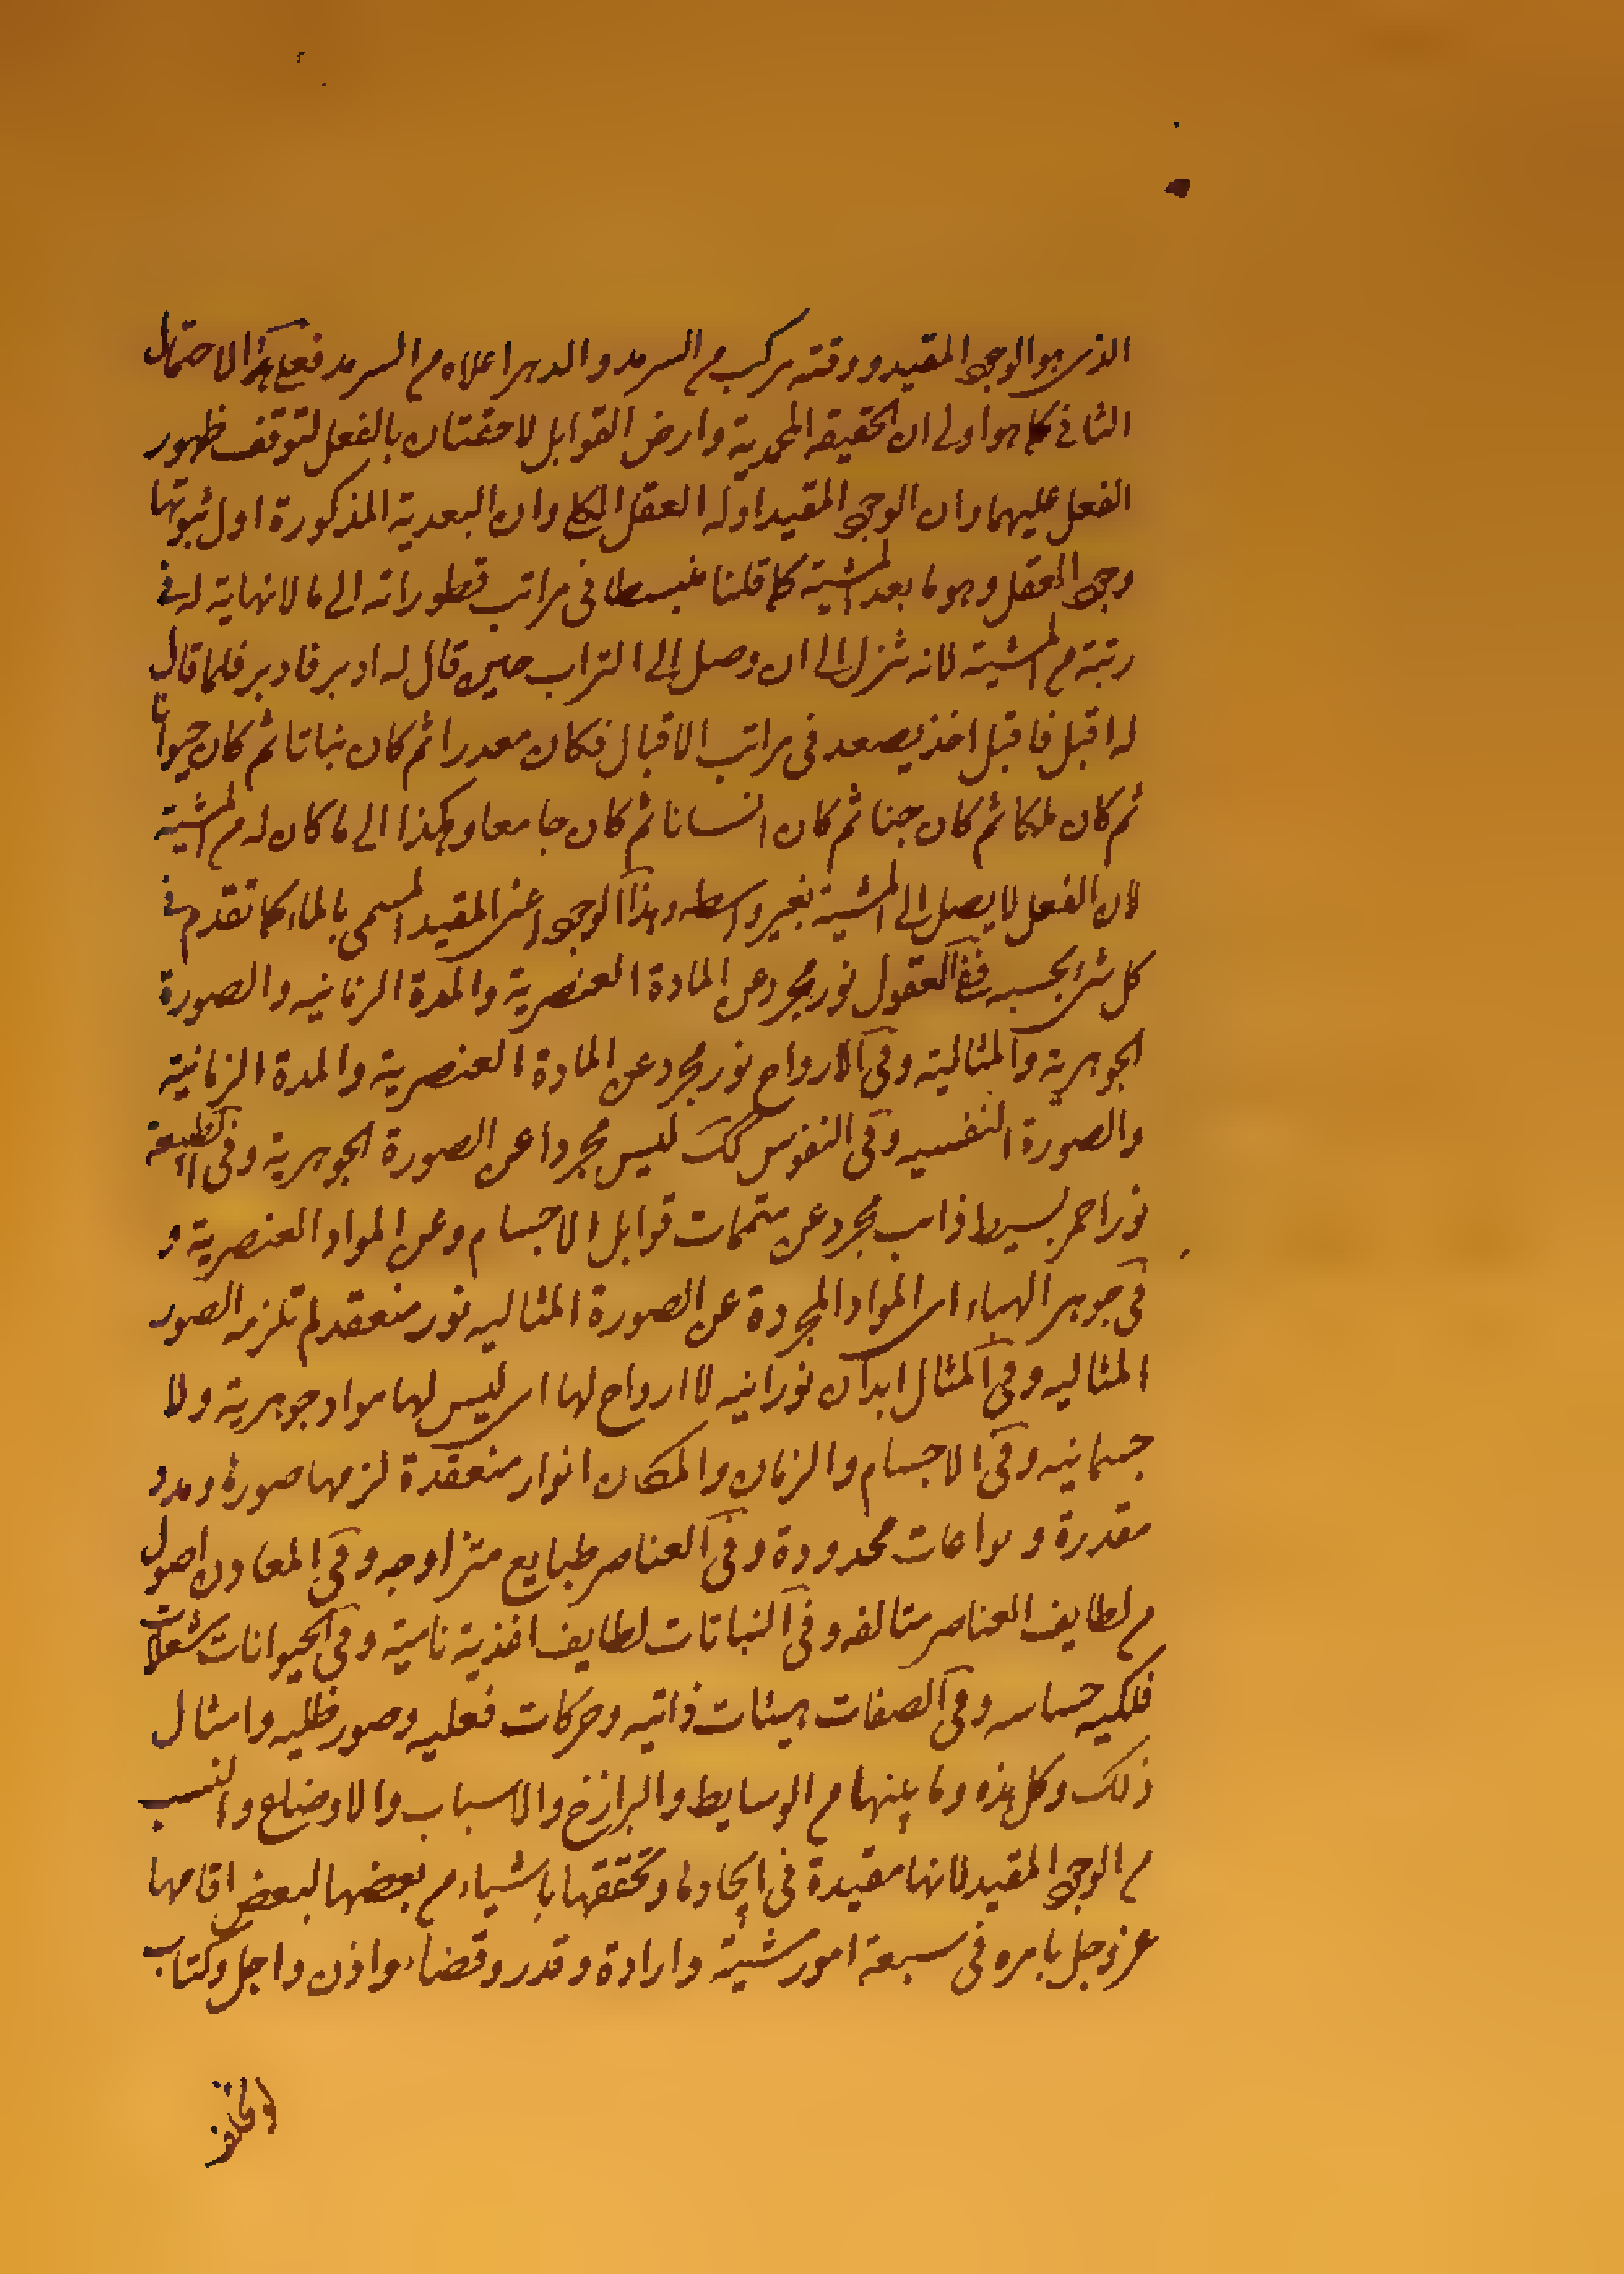 الذى هو الوجود المقيد ووقته مركب م السرمد والدهر اعلاه م السرمد فعلى هذا الاحتمال
الثانى كما هو اولى ان الحقيقه المحمدية وارض القوابل لاحقتان بالفعل لتوقف ظهور
الفعل عليهما وان الوجود المقيد اوله العقل الكلى وان البعدية المذكورة اول ثبوتها
وجود العقل وهو ما بعد المشية كما قلنا منبسطا فى مراتب تطوراته الى ما لا نهاية له فى
رتبة م المشية لانه تنزل الى ان وصل الى التراب حين قال له ادبر فادبر فلما قال
له اقبل فاقبل اخذ يصعد فى مراتب الاقبال فكان معدنا ثم كان نباتا ثم كان حيوانا
ثم كان ملكا ثم كان جنا ثم كان انسانا ثم كان جامعا وهكذا الى ما كان له م المشية
لان الفعل لا يصل الى المشية بغير واسطه وهذا الوجود اعنى المقيد المسمى بالماء كما تقدم فى
كل شئ بحسبه ففى العقول نور مجرد عن المادة العنصرية والمدة الزمانيه والصورة
الجوهرية والمثالية وفى الارواح نور مجرد عن المادة العنصرية والمدة الزمانية
والصورة النفسيه وفى النفوس كك ليس مجردا عن الصورة الجوهرية وفى الطبيعة
نور احمر بسيط ذائب مجرد عن متممات قوابل الاجسام وعن المواد العنصرية و
فى جوهر الهباء اى المواد المجردة عن الصورة المثاليه نور منعقد لم تلزمه الصور
المثاليه وفى المثال ابدان نورانيه لا ارواح لها اى ليس لها مواد جوهرية ولا
جسمانيه وفى الاجسام والزمان والمكان انوار منعقدة لزمها صورة ومدد
مقدرة و محدودة وفى العناصر طبايع متزاوجه وفى المعادن اصول
م لطايف العناصر متالفه وفى النباتات لطايف اغذية نامية وفى الحيوانات شعلات
فلكيه حساسه وفى الصفات هيئات ذاتيه وحركات فعليه وصور ظليه وامثال
ذلك وكل هذه وما بينهما م الوسايط والبرازخ والاسباب والاوضاع والنسب
م الوجود المقيد لانها مقيدة فى ايجادها وتحققها باشياء م بعضها لبعض اقامها
عز وجل بامره فى سبعة امور مشية وارادة وقدر وقضاء واذن واجل وكتاب